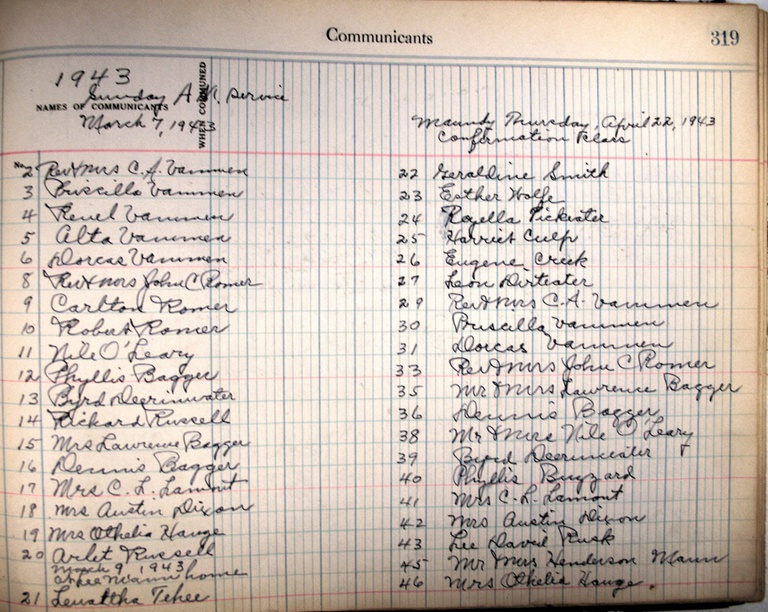 Communicants
319
1943
Sunday A.M. service
NAMES OF COMMUNICANTS
WHEN COMMUNED
March 7, 1943
No.
2 Rev & Mrs C. A. Vammen
3 Priscilla Vammen
4 Reuel Vammen
5 Alta Vammen
6 Dorcas Vammen
8 Rev & Mrs John C Romer
9 Carlton Romer
10 Robert Romer
11 Nile O'Leary
12 Phyllis Bagger
13 Byrd Deerinwater
14 Richard Russell
15 Mrs Lawrence Bagger
16 Dennis Bagger
17 Mrs C. L. Lamont
18 Mrs Austin Dixon
19 Mrs Othelia Hauge
20 Arlet Russell
March 9, 1943
at Lee Mann home
21 Tehee
Maundy Thursday, April 22, 1943
Confirmation Class
22 Geraldine Smith
23 Esther Wolfe
24 Rozella
25 Harriet Culp
26 Eugene Creek
27 Leon
29 Rev & Mrs C. A. Vammen
30 Priscilla Vammen
31 Dorcas Vammen
33 Rev & Mrs John C Romer
35 Mr & Mrs Lawrence Bagger
36 Dennis Bagger
38 Mr & Mrs Nile O'Leary
39 Byrd Deerinwater
40 Phyllis Buzzard
41 Mrs C. L. Lamont
42 Mrs Austin Dixon
43 Lee David Rusk
45 Mr & Mrs Henderson Mann
46 Mrs Othelia Hauge.